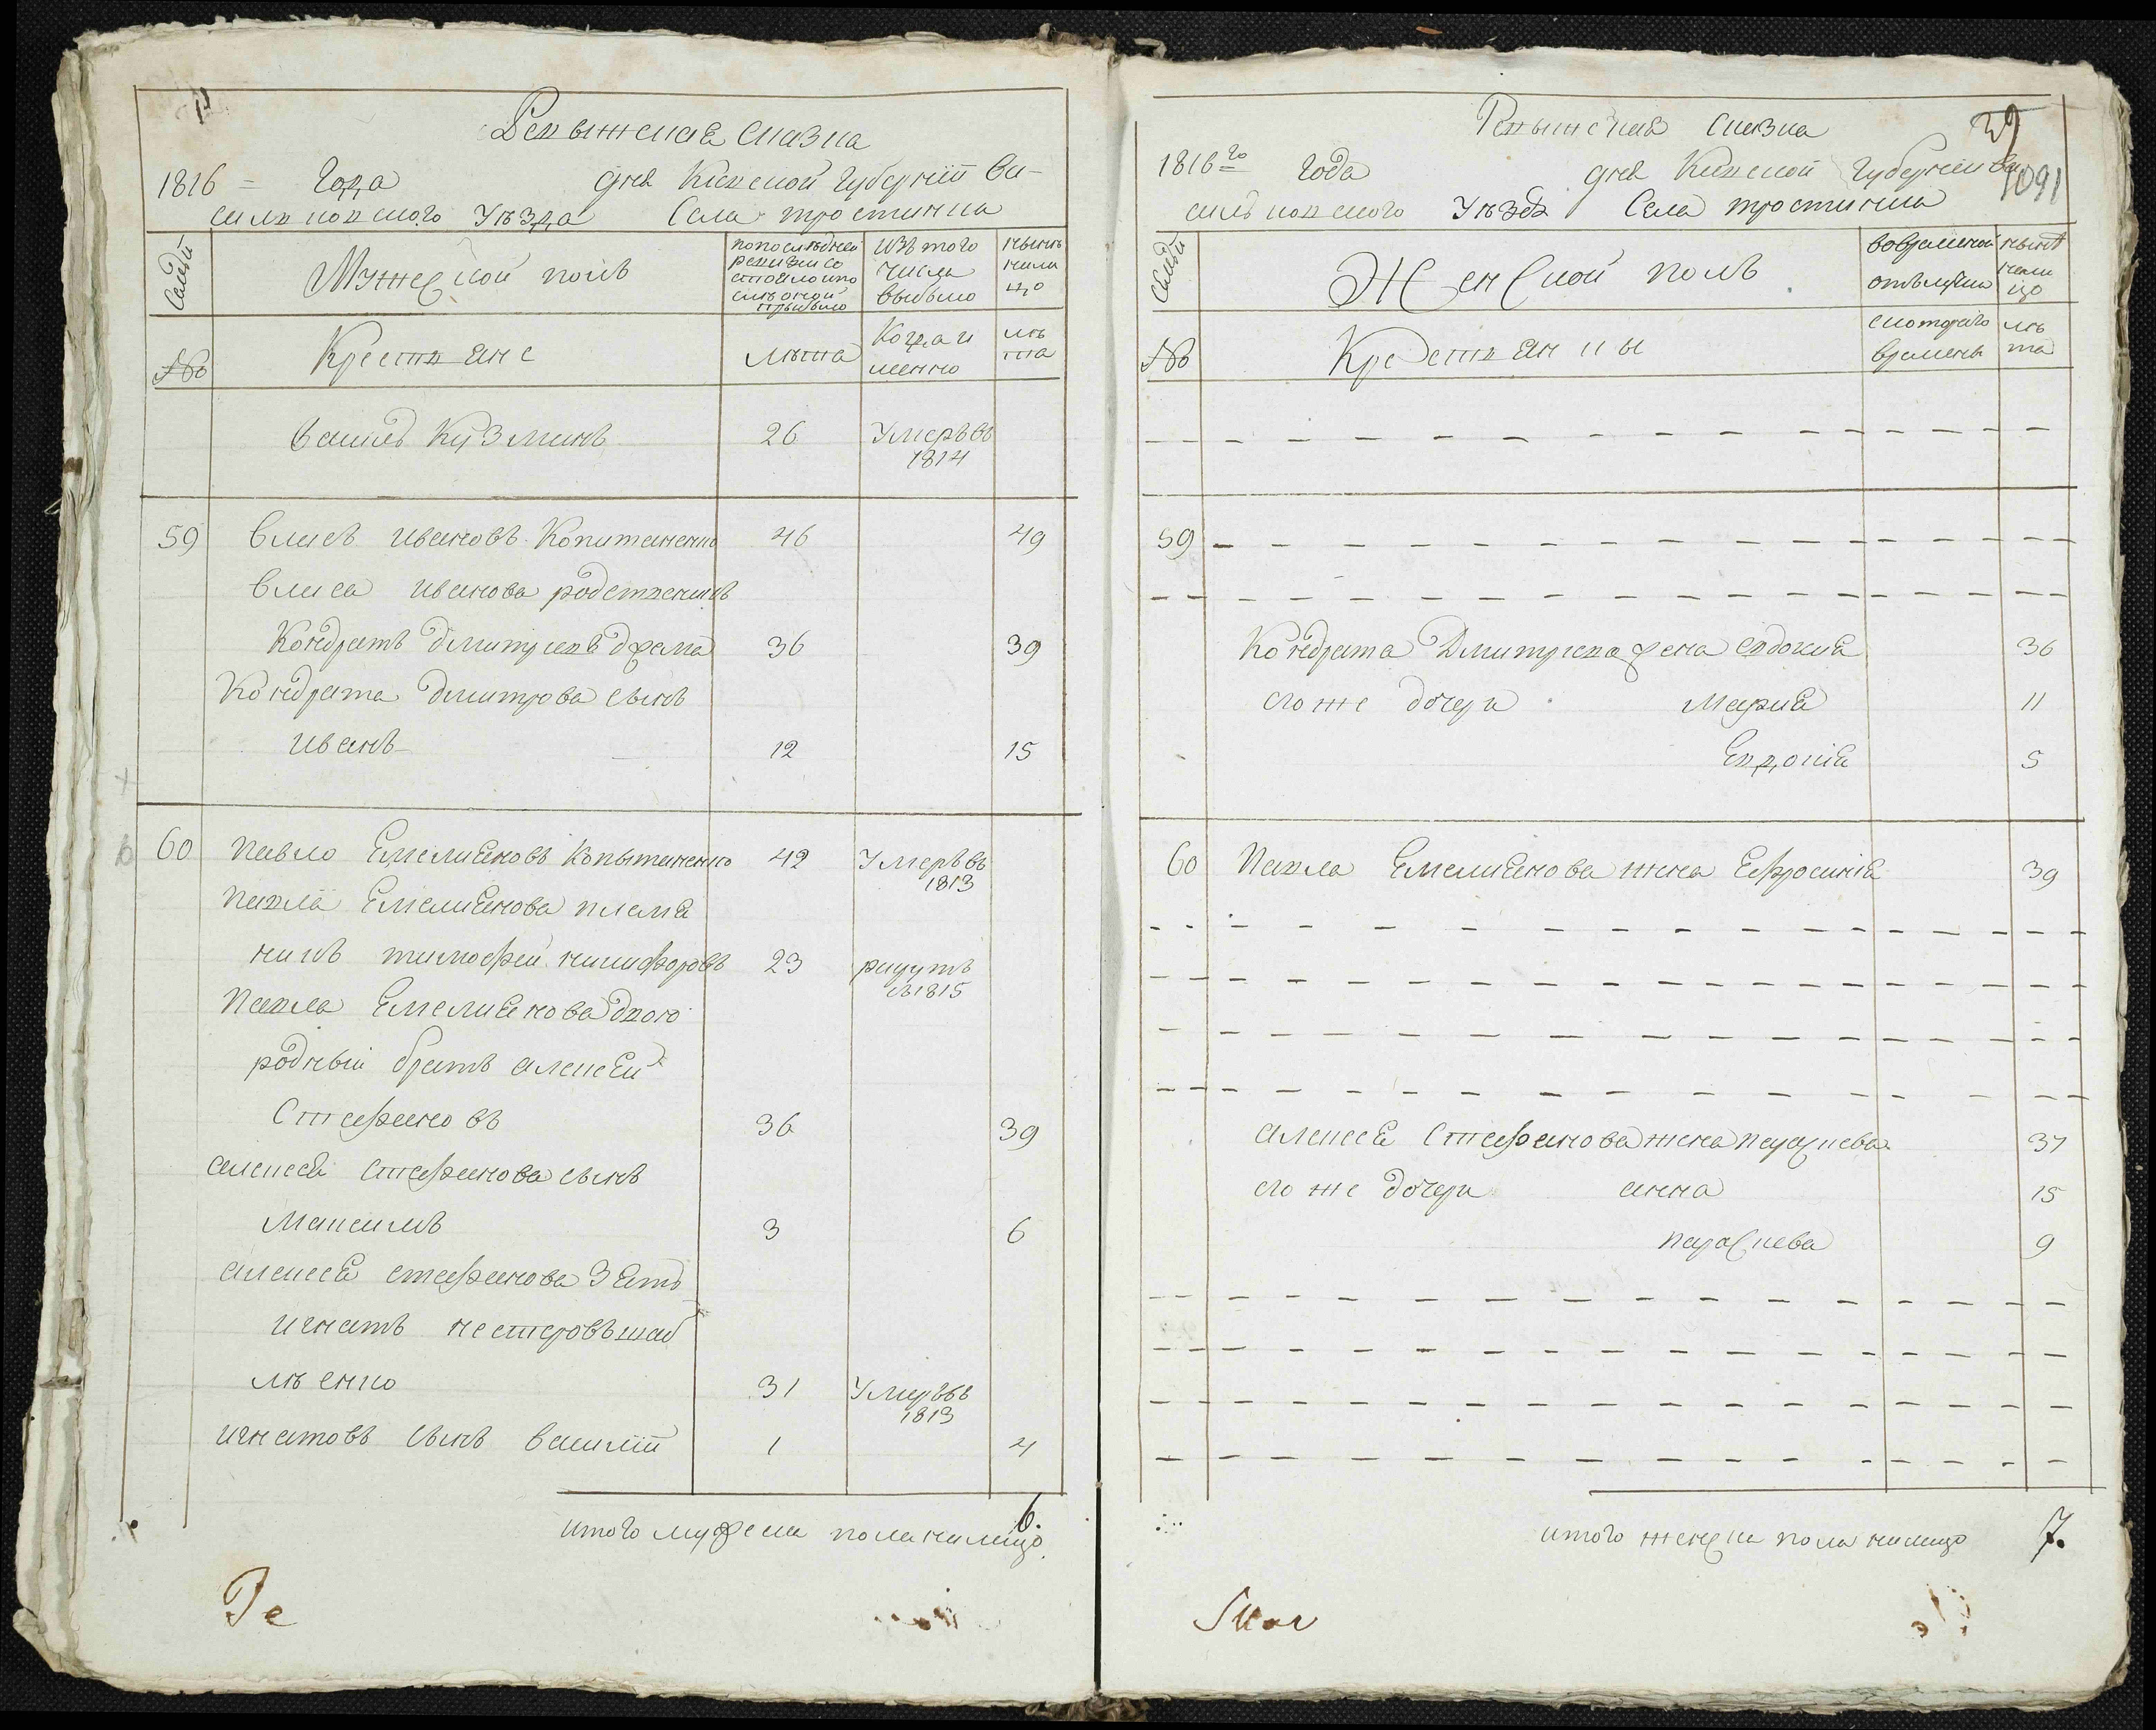 Ревижская сказка
1816 = Года дня Киевской Губернїи Ва-
силковского Уѣзда Села тростинки
Семьи
Мужеской полъ
попослѣдней
ревизии со
стояло ипо
слѣ оной
прибыло
Изъ того
числа
выбыло
нынѣ
нали
цо
№
Крестяне
лѣта
Когда и
менно
лѣ
та
Василь Кузминъ 26 Умеръ въ
1814
59 Влисъ Ивановъ Копитаненко 46 49
Влиса Иванова родствениъ
Кондратъ Дмитриевъ дрема 36 39
Кондрата Дмитрова сынъ
Иванъ 12 15
60 Павло Емелияновъ Копытаненко 42 Умеръ въ
1813
Павла Емелиянова племя
никъ тимофей никифоровъ 23 рекрутъ
въ 1815
Павла Емелиянова двою
родный братъ алексей
Стефановъ 36 39
алексея Стефанова сынъ
Максимъ 3 6
алексея стефанова Зять
игнатъ нестеровъ шаб
лѣенко 31 Умеръ въ
1813
игнатовъ сынъ василїй 1 4
итого мужеска пола налицо 6.
Ре
Ревижская Сказка
39
1091
1816го Года дня Киевской Губернїи Ва
силковского Уѣзда Села тростинки
Семьи
Женской полъ
вовременой
отълучки
нынѣ
нали
цо
№
Крестянки
скоторого
времени
лѣ
та
59
Кондрата Дмитриева жена евдокия 36
его же дочери Мария 11
Евдокїя 5
60 Павла Емелиянова жена Ефросинїя 39
алексея Стефанова жена параскева 37
его же дочери анна 15
параскева 9
итого женска пола налицо 7.
Скас